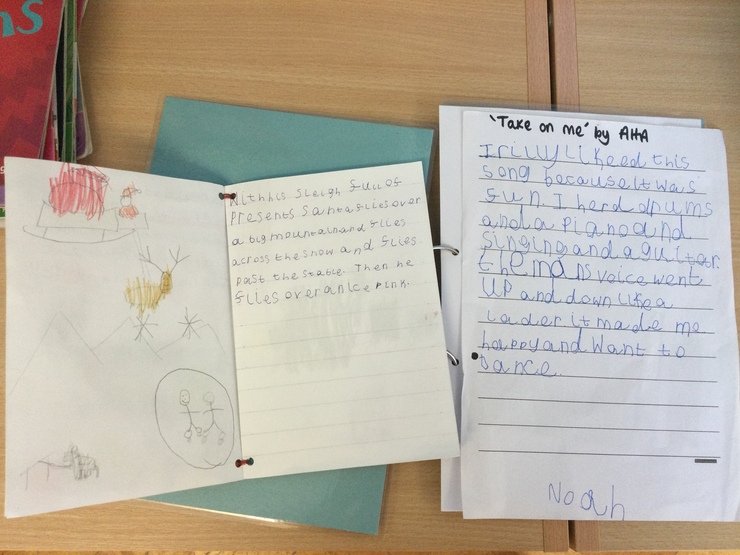 ns
With his sleigh full of
presents santa flies over
a big mountain and flies
across the snow and flies
past the stable. Then he
flies over an ice pink.
'Take on me' by AHA
I rilly likeed this
song because It was
fun I herd drums
and a piano and
singing and a guitar.
the mans voice went
up and down like a
lader it made me
happy and want to
dance.
Noah